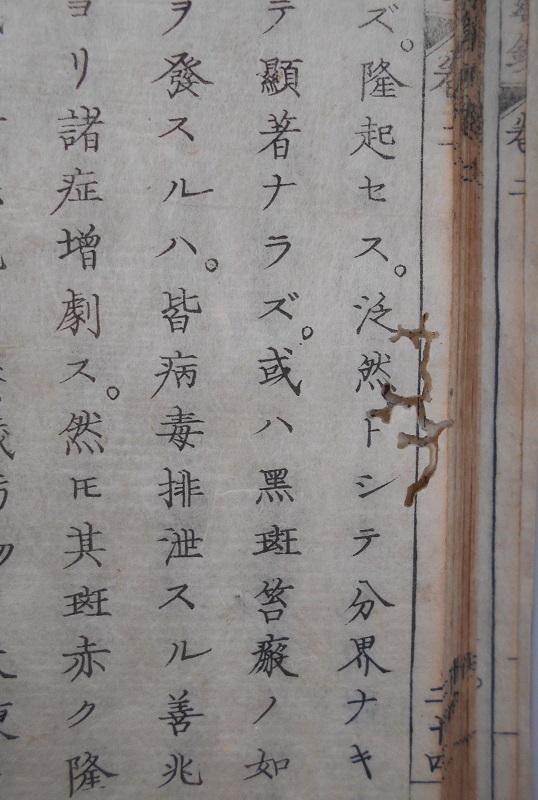 ズ。隆起セス。泛然トシテ分界ナキ
テ顯著ナラズ。或ハ黑斑笞瘢ノ如
ヲ發スルハ。皆病毒排泄スル善兆
ヨリ諸症增劇ス。然𪜈其斑赤ク隆
卷二
二十四
卷二